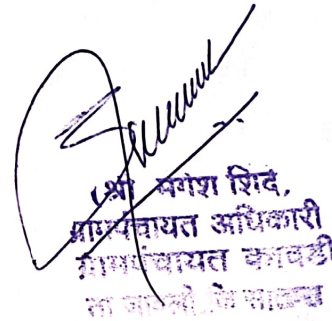 (श्री मंगेश शिंदे,
ग्रामपंचायत अधिकारी
ग्रामपंचायत कावडी
ता जावली जि सातारा